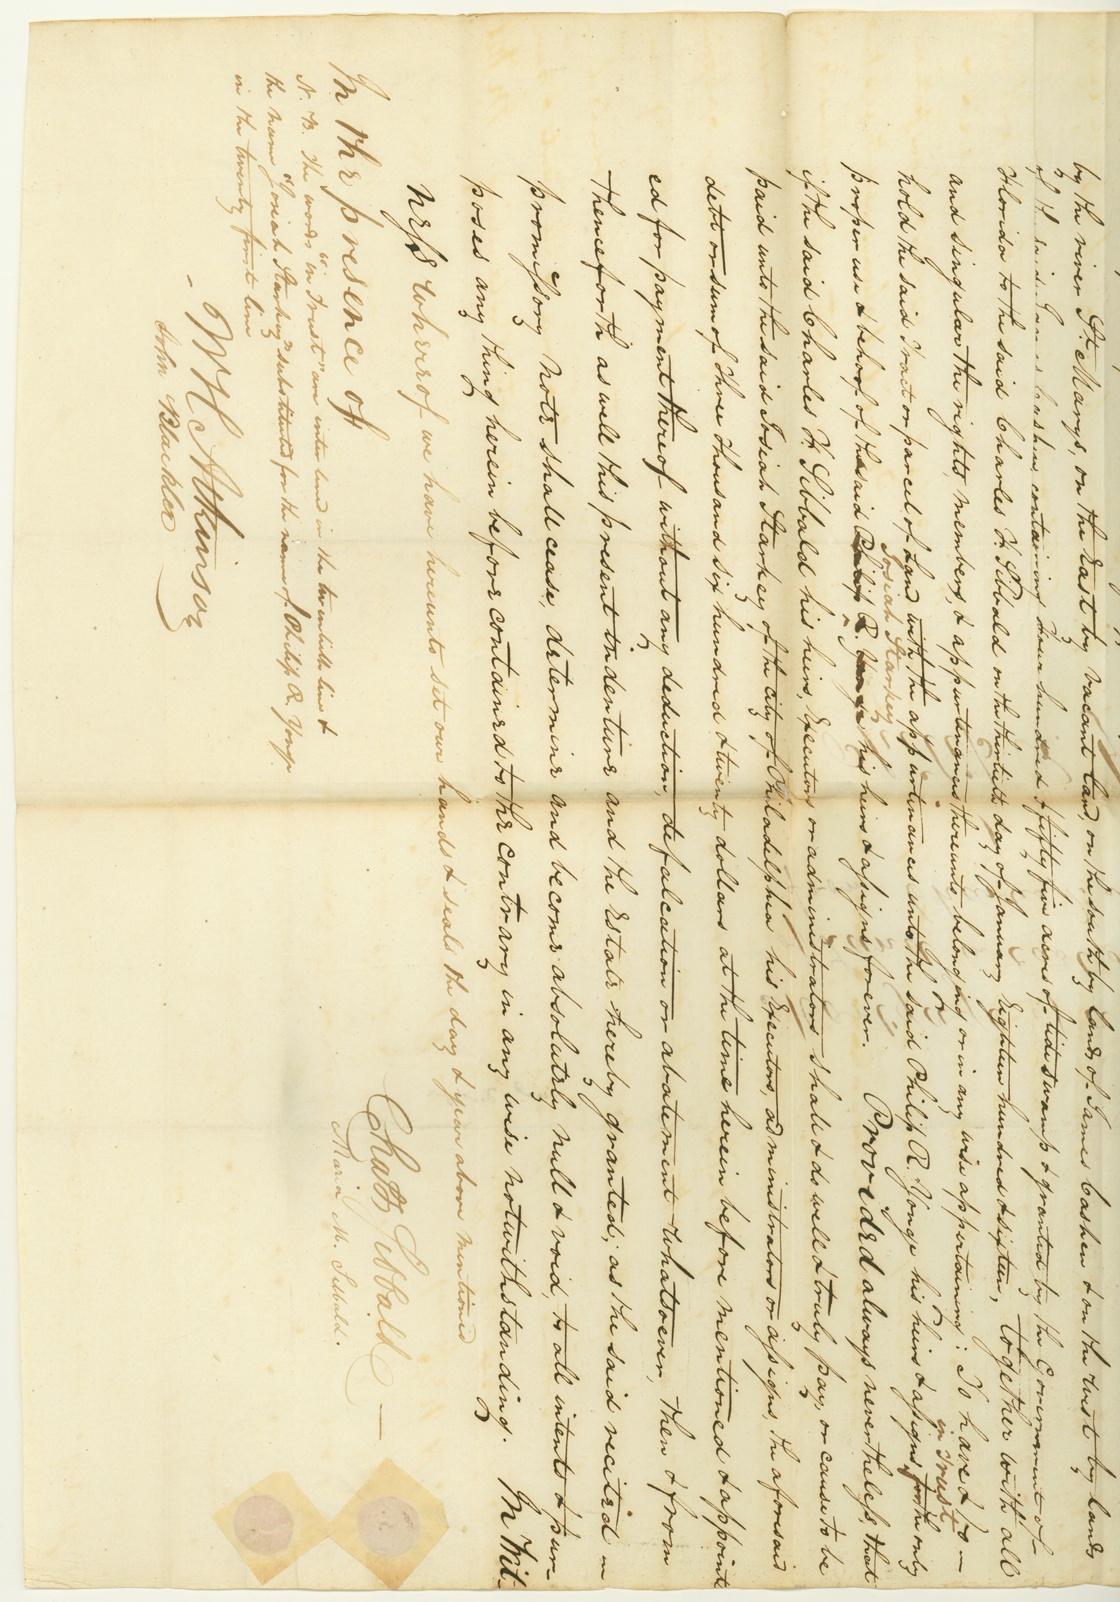 by the river St. Marys, on the East by vacant land, on the south by lands of James Cashen & on the west by lands
of the said James Cashen, containing four hundred & fifty five acres of tide swamp & granted by the Government of
Florida to the said Charles F. Sibbald on the thirtieth day of January Eighteen hundred & sixteen, Together with all
and singular the rights, members, & appurtenances thereunto belonging or in any wise appertaining: To have & to
hold the said Tract or parcel of Land with the appurtenances unto the said Philip R. Yonge his heirs & assigns in trust for the only
proper use & behoof of the said Philip R. Yonge Josiah Starkey his heirs & assigns forever. Provided always nevertheless that
if the said Charles F. Sibbald his heirs, Executors or administrators shall & do well & truly pay, or cause to be
paid unto the said Josiah Starkey of the city of Philadelphia his Executors, administrators or assigns, the aforesaid
debt or sum of three thousand six hundred & twenty dollars at the time herein before mentioned & appoint
ed for payment thereof without any deduction, defalcation or abatement whatsoever, then & from
thenceforth as well this present indenture and the Estate hereby granted, as the said recited
promissory note shall cease, determine and become absolutely null & void, to all intents & pur-
poses any thing herein before contained to the contrary in any wise notwithstanding. In Wit-
ness whereof we have hereunto set our hands & seals the day & year above mentioned
In the presence of
N. B. The words "in trust" are interlined in the twentieth line &
the name of "Josiah Starkey" substituted for the name of Philip R. Yonge
in the twenty first line
Chas F Sibbald
Maria M. Sibbald.
W H C Atkinson
John Blacklee